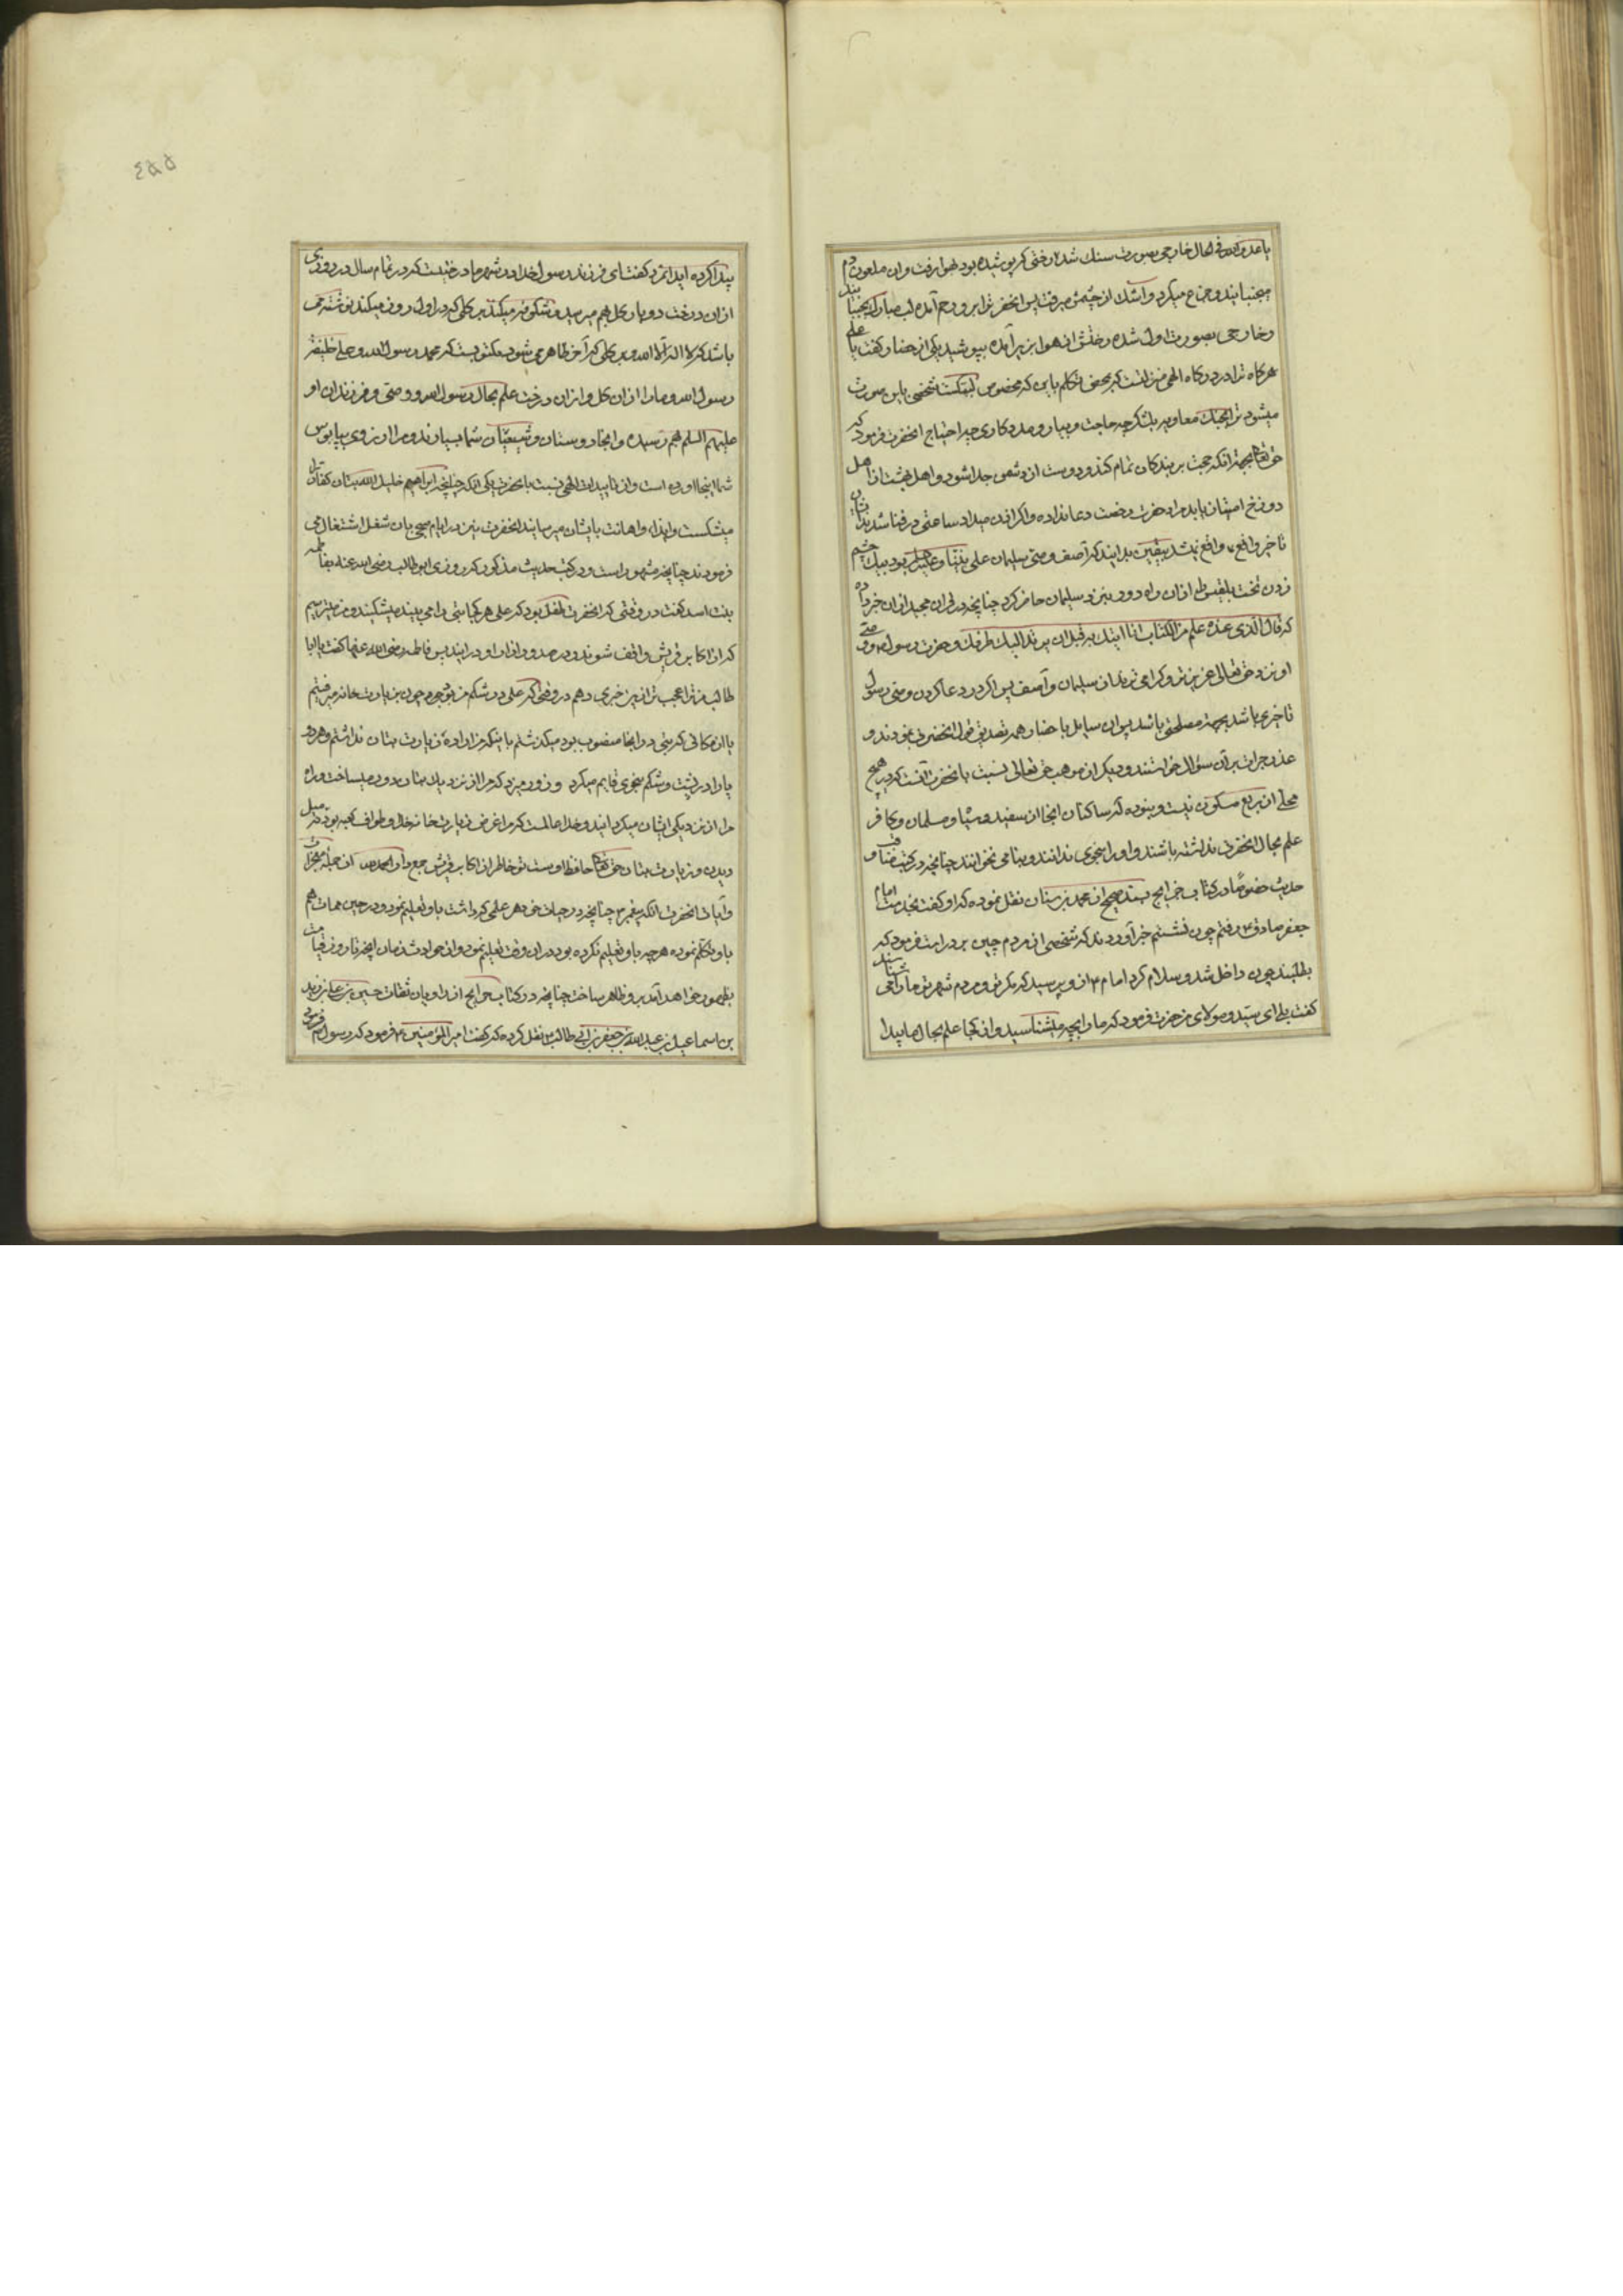 باعدو الله فی الحال خارجی بصورت سنك شد و رختی که پوشیده بود بهوا رفت و ان ملعون دم
میجنبانید و جزع میکرد و اشك از چشمش میرفت پس انحضرترا برو رحم آمده لب مبارك بجنبانید
و خارجی بصورت اول شده رختش از هوا بزیر آمده بپوشید یکی از حضار کفت یا علی
هرکاه ترا در درکاه الهی منزلتست که بمحض تکلم باین که شخصی باین صورت
میشود ترا بجنك معاویه بلشکر چه حاجت و بیار و مددکاری چه احتیاج انحضرت فرمود که
حق تعالی بجهة انکه حجت بر بندکان تمام کند و دوست از دشمن جدا شود و اهل بهشت از اهل
دوزخ امتیاز یابد مرا رخصت دعا نداده و اکر اذن میداد ساعتی در فنا شدن ایشان
تاخیر واقع نمیشد بیقین بدانید که آصف وصی سلیمان علی نبینا و علیه السلم بود بیك چشم
زدن تخت بلقیس را از ان راه دور بنزد سلیمان حاضر کرد چنانچه در قران مجید از ان خبر داده
که قال الذی عنده علم من الکتاب انا اتیك به قبل ان یرتد الیك طرفك و حضرت رسول و وصی
او نزد حق تعالی عزیزتر و کرامی ترند از سلیمان و آصف پس اکر در دعا کردن وصی رسول
تاخیری باشد بجهة مصلحتی باشد پس ان سایل با حضار همه تصدیق قول انحضرت نمودند و
عذر جرات بر آن سؤال خواستند و دیکر از مواهب حق تعالی نسبت بانحضرت آنست که در هیچ
محلی از ربع مسکون نیست و نبوده که ساکنان انجا از سفید و سیاه و مسلمان و کافر
علم بحال انحضرت نداشته باشند و او را بنحوی ندانند و بنامی نخوانند چنانچه در کتب مناقب و
حدیث خصوصا در کتاب خرایج بسند صحیح از محمد بن سنان نقل نموده که او کفت بخدمت امام
جعفر صادق رفتم چون نشستم خبر آوردند که شخصی از مردم چین بر در است فرمود که
بطلبیند چون داخل شد و سلام کرد امام از و پرسید که مکر تو و مردم شهر تو ما را می شناسند
کفت بلی ای سید و مولای من حضرت فرمود که ما را بچه میشناسید و از کجا علم بحال ما پیدا
٤٥٥
پیدا کرده اید انمرد کفت ای فرزند رسول خدا در شهر ما درختیست که در تمام سال در روزی
از ان درخت دو بار کل بهم میرسد و شکوفه میکند بر کلی که در اول روز میکند نوشته می
باشد که لا اله الا الله و بر کلی که آخر ظاهر می شود مکتوبست که محمد رسول الله و علی خلیفه
رسول الله و ما را از ان کل و از ان درخت علم بحال رسول الله و وصی و فرزندان او
علیهم السلم بهم رسیده و انجا دوستان و شیعیان شما بسیارند و مرا ارزوی پابوس
شما اینجا آورده است و از تاییدات الهی نسبت بانحضرت یکی انکه چنانچه ابراهیم خلیل الله بتان کفار را
میشکست و ایذا و اهانت بایشان میرسانید انحضرت نیز در ایام صبی بان شغل اشتغال می
فرمودند چنانچه مشهور است و در کتب حدیث مذکور که روزی ابو طالب رضی الله عنه بفاطمه
بنت اسد کفت در وقتی که انحضرت طفل بود که علی هر کجا بتی را می بیند میشکند و من میترسم
که اکابر قریش واقف شوند و در صدد ازار او در ایند پس فاطمه رضی الله عنها کفت یا ابا
طالب من ترا عجب تر ازین خبری دهم در وقتی که علی در شکم من بود چون بزیارت خانه میرفتم
یا از مکانی که بتی در انجا منصوب بود میکذشتم با اینکه من اراده زیارت بتان نداشتم و هر دو
پا را در پشت و شکم بنحوی قایم میکرد و زور میزد که مرا از نزد یك بتان دور میساخت و راه
مرا از نزدیکی ایشان میکردانید و خدا عالمست که مرا غرض زیارت خانه خدا و طواف کعبه بود نه میل
دیدن و زیارت بتان حق تعالی حافظ اوست تو خاطر از اکابر قریش جمع دار الحمد لله از جمله معجزات
و آیات انحضرت انکه پیغمبر چنانچه در حیات خود هر علمی که داشت باو تعلیم نمود و در حین ممات هم
باو تکلم نموده هر چه باو تعلیم نکرده بود در ان وقت تعلیم نمود و از حوادث زمان انچه تا روز قیامت
بظهور خواهد آمد برو ظاهر ساخت چنانچه در کتاب خرایج از راویان ثقات حسین بن علی بن زید
بن اسماعیل بن عبدالله بن جعفر بن ابی طالب نقل کرده که کفت امیر المؤمنین فرمود که رسول مرا